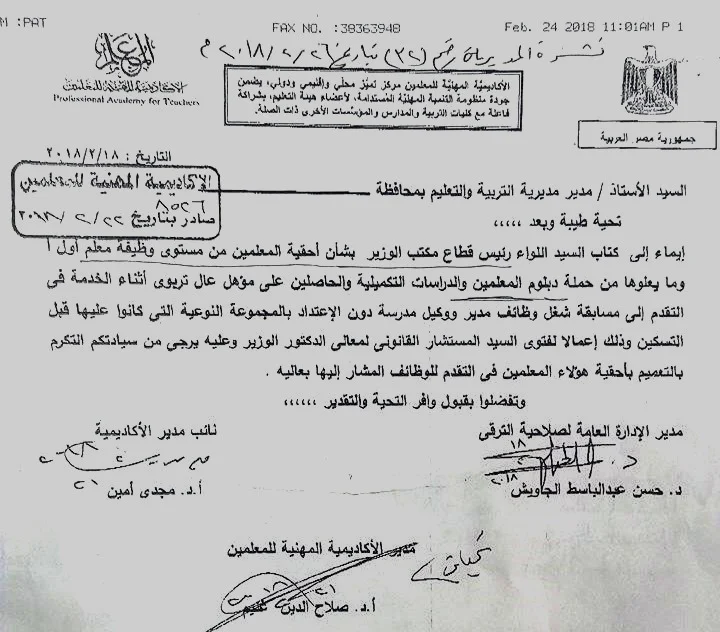 M :PAT FAX NO. :38363948 Feb. 24 2018 11:01AM P 1
نشرة المديرية رقم (٣٢) بتاريخ ٢٠١٨/٢/٢٦ م
الأكاديمية المهنية للمعلمين
Professional Academy for Teachers
الأكاديمية المهنية للمعلمين مركز تميز محلي وإقليمي ودولي، يضمن
جودة منظومة التنمية المهنية المستدامة، لأعضاء هيئة التعليم، بشراكة
فاعلة مع كليات التربية والمدارس والمؤسسات الأخرى ذات الصلة.
جمهورية مصر العربية
التاريخ : ٢٠١٨/٢/١٨
الأكاديمية المهنية للمعلمين
٨٥٢٦
صادر بتاريخ ٢٠١٨/٢/٢٢
السيد الأستاذ / مدير مديرية التربية والتعليم بمحافظة
تحية طيبة وبعد ،،،،،
إيماء إلى كتاب السيد اللواء رئيس قطاع مكتب الوزير بشأن أحقية المعلمين من مستوى وظيفة معلم أول أ
وما يعلوها من حملة دبلوم المعلمين والدراسات التكميلية والحاصلين على مؤهل عال تربوى أثناء الخدمة فى
التقدم إلى مسابقة شغل وظائف مدير ووكيل مدرسة دون الإعتداد بالمجموعة النوعية التي كانوا عليها قبل
التسكين وذلك إعمالا لفتوى السيد المستشار القانوني لمعالى الدكتور الوزير وعليه يرجي من سيادتكم التكرم
بالتعميم بأحقية هؤلاء المعلمين فى التقدم للوظائف المشار إليها بعاليه .
وتفضلوا بقبول وافر التحية والتقدير ،،،،،،
مدير الإدارة العامة لصلاحية الترقى
د. حسن عبدالباسط الجاويش
نائب مدير الأكاديمية
أ.د. مجدى أمين
مدير الأكاديمية المهنية للمعلمين
أ.د. صلاح الدين غنيم